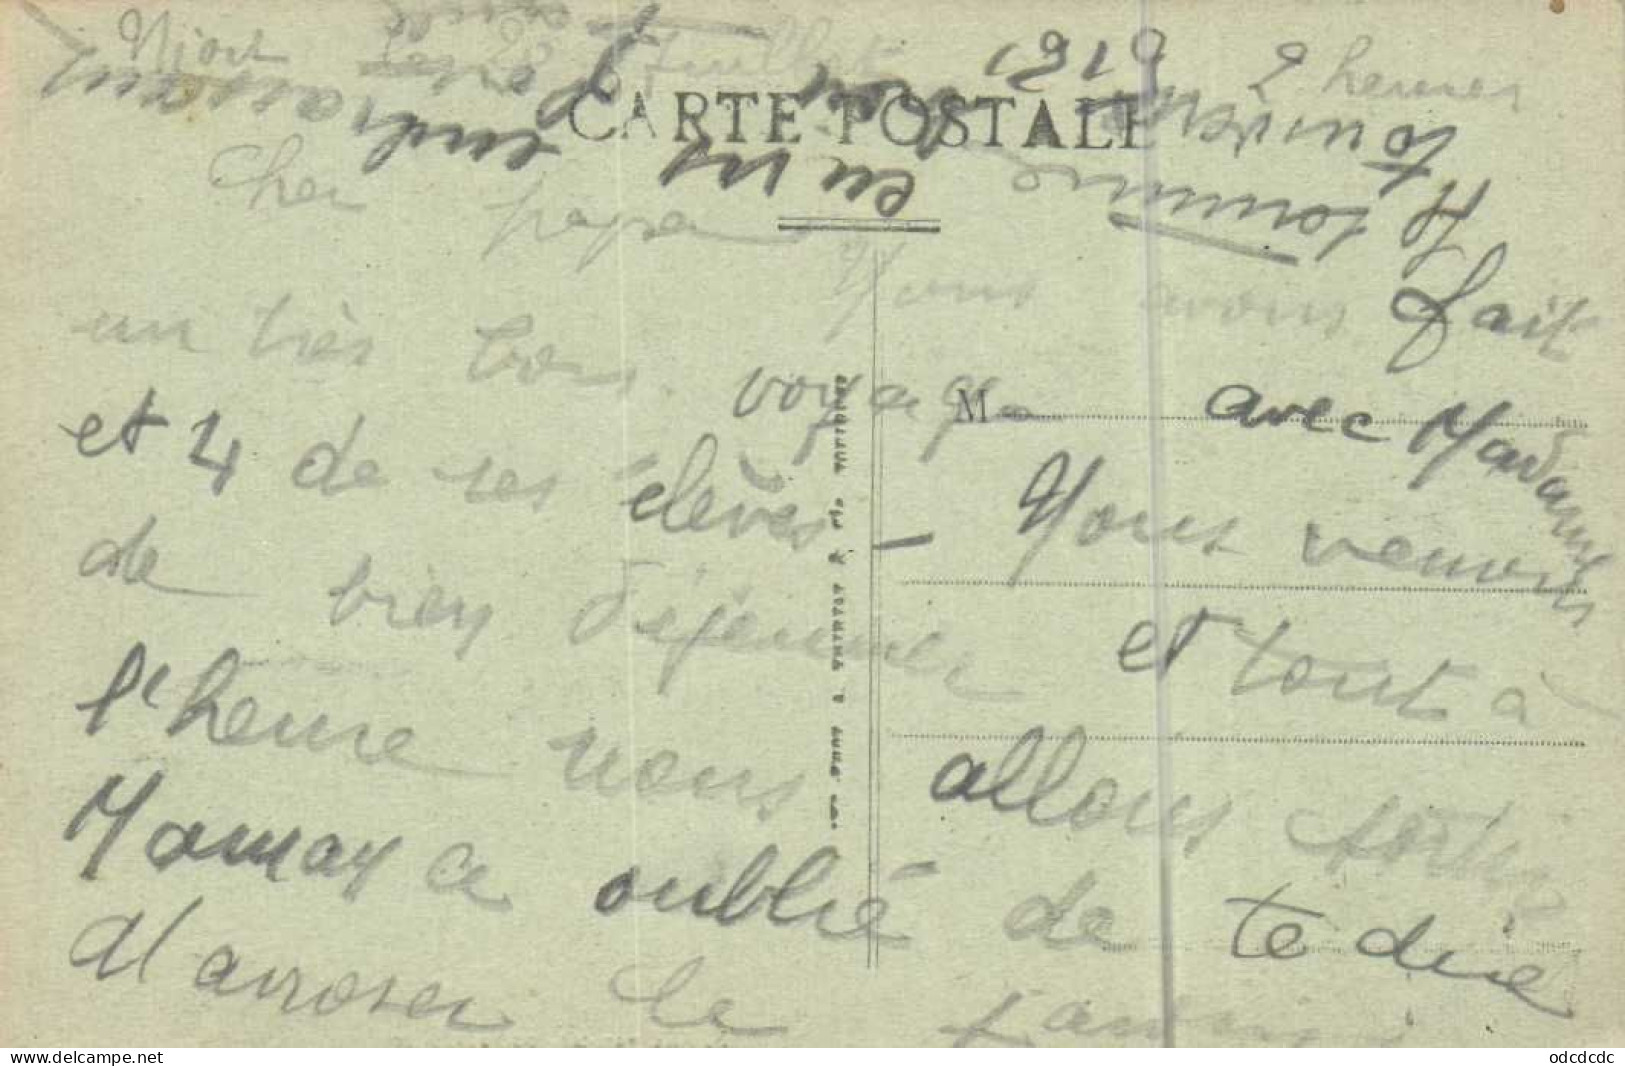 Niort 22 Juillet 1919 2 heures
CARTE POSTALE
Cher papa
Nous avons fait
un très bon voyage avec Madame
M
et 4 de ses élèves - Nous venons
de bien déjeuner et tout à
l'heure nous allons sortir
Maman a oublié de te dire
d'arroser le
en vs embrassant
odcdcdc